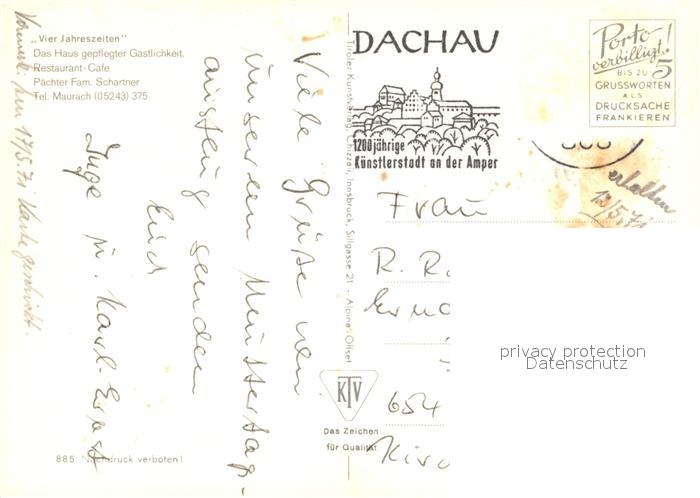 „Vier Jahreszeiten"
Das Haus gepflegter Gastlichkeit.
Restaurant-Cafe
Pächter Fam. Schartner
Tel. Maurach (05243) 375
Viele Grüße von
unserem Muttertags-
ausflug senden
Euch
Inge u. Karl-Ernst
pm 17/5.71 Karte geschickt.
885 Nachdruck verboten!
Tiroler Kunstverlag Chizzali, Innsbruck, Sillgasse 21 - Alpina-Offset
KTV
Das Zeichen
für Qualität
DACHAU
1200jährige
Künstlerstadt an der Amper
Porto
verbilligt!
BIS ZU 5
GRUSSWORTEN
ALS
DRUCKSACHE
FRANKIEREN
erhalten
13/5.71
Frau
R. R
654
privacy protection
Datenschutz